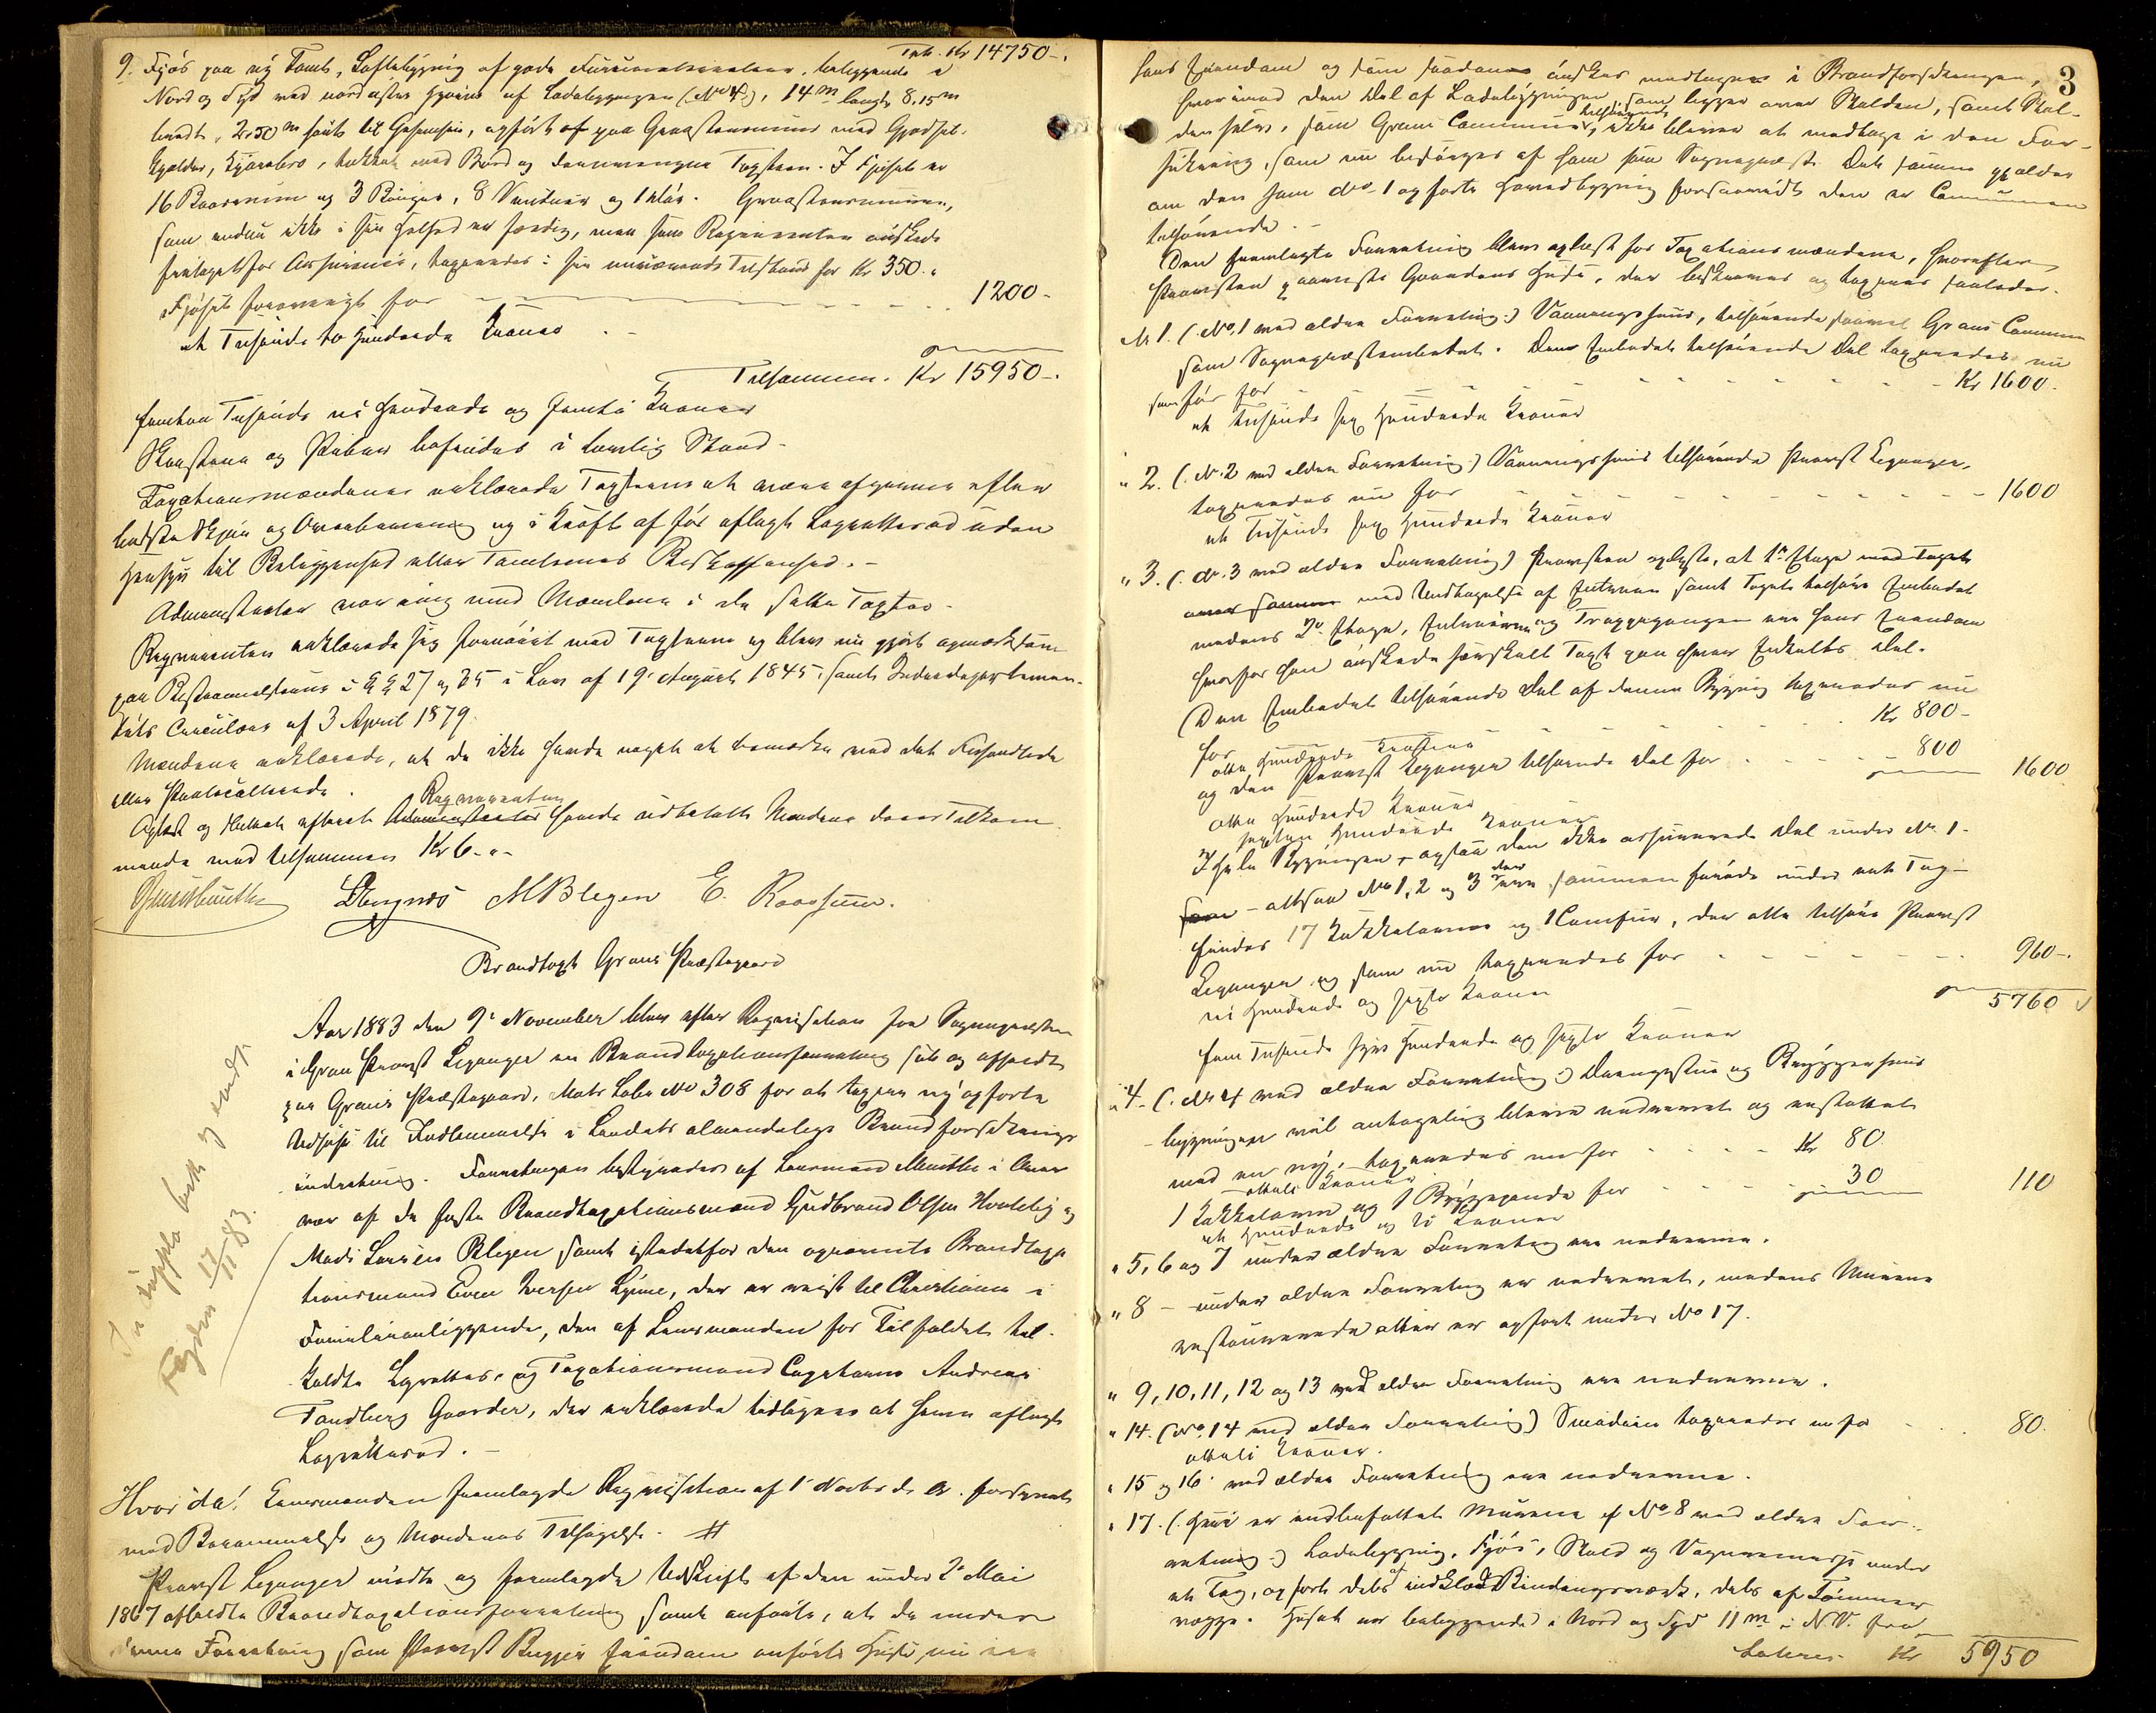 Trsp. Kr 14750-.
9. Fjøs paa ny Tomt, Loftsbygning af gode Furumaterialier, beliggende i
Nord og Syd ved nordøstre Hjørne af Ladebygningen (No 4), 14 m langt 8,15 m
bredt, 2,50 m høit til Gesimsen, opført af paa Graastensmuur med Gjødsel-
kjelder, Kjørebro, tækket med Bord og Teglsteen. I Fjøset er
16 Baaserum og 3 Binger, 8 Vinduer og 1 Dør. Graastensmuren,
som endnu ikke i sin Helhed er færdig, men som Rekvirenten ønskede
fratagelse for Assurance, taxeredes i sin nuværende Tilstand for Kr 350.
Fjøset forøvrigt for 1200-
et Tusinde to Hundrede Kroner.-
Tilsammen. Kr 15950-.
femten Tusinde ni Hundrede og femti Kroner
Skorstene og Piber befindes i lovlig Stand-
Taxationsmændene erklærede Taxterne at være afgivne efter
bedste Skjøn og Overbevisning og i Kraft af før aflagt Lagretteed uden
Hensyn til Beliggenhed eller Tomternes Beskaffenhed.-
Administrator var enig med Mændene i de satte Taxter-
Rekvirenten erklærede sig fornøiet med Taxterne og blev nu gjort opmærksom
paa Bestemmelserne i §§ 27 og 35 i Lov af 19 August 1845, samt Indredepartemen-
tets Circulære af 3 April 1879.
Mændene erklærede, at de ikke havde noget at bemærke ved det Forhandlede
eller Protocollerede.
Oplæst og Vedtaget efterat Rekvirenten havde udbetalt Mændene deres Tilkom-
mende med tilsammen Kr 6.-
Munthe MBlegen E. Raasum.
Brandtaxt Grans Præstegaard
Aar 1883 den 9de November blev efter Rekvisition fra Sognepræsten
i Gran Provst Leganger en Brandtaxationsforretning sat og afholdt
paa Grans Præstegaard, Matr Løbe No 308 for at taxere nyopførte
Udhuse til Indlemmelse i Landets almindelige Brandforsikrings
indretning. Forretningen bestyredes af Lensmand Munthe i Over
vær af de faste Brandtaxationsmænd Gudbrand Olsen Hvaleby og
Mads Larsen Blegen samt istedetfor den opnævnte Brandtaxa
tionsmand Even Iversen Lynne, der er reist til Christiania i
Familieanliggende, den af Lensmanden for Tilfældet til-
kaldte Lagrettes- og Taxationsmand Andreas
Tandberg Gaarder, der erklærede tidligere at have aflagt
Lagretteed.-
Hvor da! Lensmanden fremlagde Rekvisition af 1 Novbr d. A. forsynet
med Berammelse og Mændenes Tilsigelse. #
Provst Leganger mødte og fremlagde Udskrift af den under 2 Mai
1867 afholdte Brandtaxationsforretning samt anførte, at de under
denne Forretning som Provst Bugges Eiendom anførte Huse, nu ere
Fogden 17/11 83.
3
hans Eiendom og som saadanne ønskes medtagne i Brandforsikringen,
hvorimod den Del af Ladebygningen som ligger over Stalden, samt Stal-
den selv, som Grans Commune tilhørende, ikke bliver at medtage i den For-
sikring, som nu besørges af ham som Sognepræst. Det samme gjælder
om den som No. 1 opførte Hovedbygning forsaavidt den er Communen
tilhørende.-
Den fremlagte Forretning blev oplæst for Taxationsmændene, hvorefter
Provsten paaviste Gaardens Huse, der beskreves og taxeres saaledes.
No 1. (No 1 ved ældre Forretning) Vaaningshuus, tilhørende saavel Grans Commune
som Sognepræstembedet. Den Embedet tilhørende Del taxeredes nu
som før for Kr 1600.
et tusinde sex hundrede Kroner
" 2. (No. 2 ved ældre Forretning) Vaaningshuus tilhørende Provst Leganger,
taxeredes nu for 1600
et Tusinde sex hundrede Kroner
" 3. (No. 3 ved ældre Forretning) Provsten oplyste, at 1ste Etage med Taget
over samme med Undtagelse af Interiør samt Taget tilhøre Embedet
medens 2den Etage, Interiør og Trappegangen er hans Eiendom
hvorfor han ønskede særskilt Taxt paa hver Enkelts Del.
(Den Embedet tilhørende Del af denne Bygning taxeredes nu
for Kr 800-
otte hundrede Kroner
og den Provst Leganger tilhørende Del for 800 1600
otte hundrede Kroner
sexten Hundrede Kroner
I hele Bygningen - ogsaa den ikke assurerede Del under No 1-
- altsaa No 1, 2 og 3 der ere sammenhørende under eet Tag-
findes 17 Kakkelovne og 1 Comfur, der alle tilhøre Provst
Leganger og som nu taxeredes for 960-.
ni Hundrede og sexti Kroner
5760
fem Tusinde syv hundrede og sexti Kroner
" 4. (No 4 ved ældre Forretning) Drengestue og Bryggerhuus
-bygningen vil antagelig blive nedrevet og erstattet
med en ny, taxeredes nu for Kr 80.
otteti Kroner
1 Kakkelovn og 1 Bryggepande for 30 110
et Hundrede og ti Kroner
" 5, 6 og 7 under ældre Forretning ere nedrevne.
" 8 - under ældre Forretning er nedrevet, medens Murene
restaurerede atter er opført under No 17.
" 9, 10, 11, 12 og 13 ved ældre Forretning ere nedrevne.
" 14. (No. 14 ved ældre Forretning) Smedien taxeredes nu for 80.
otteti Kroner.
" 15 og 16 ved ældre Forretning ere nedrevne.
" 17. (Heri er indbefattet Murene af No 8 ved ældre For-
retning) Ladebygning, Fjøs, Stald og Vognremisse under
et Tag, opført dels af indklædt Bindingsværk, dels af Tømmer
vægge. Huset er beliggende i Nord og Syd 11 m i N.V. fra
Lateres Kr 5950